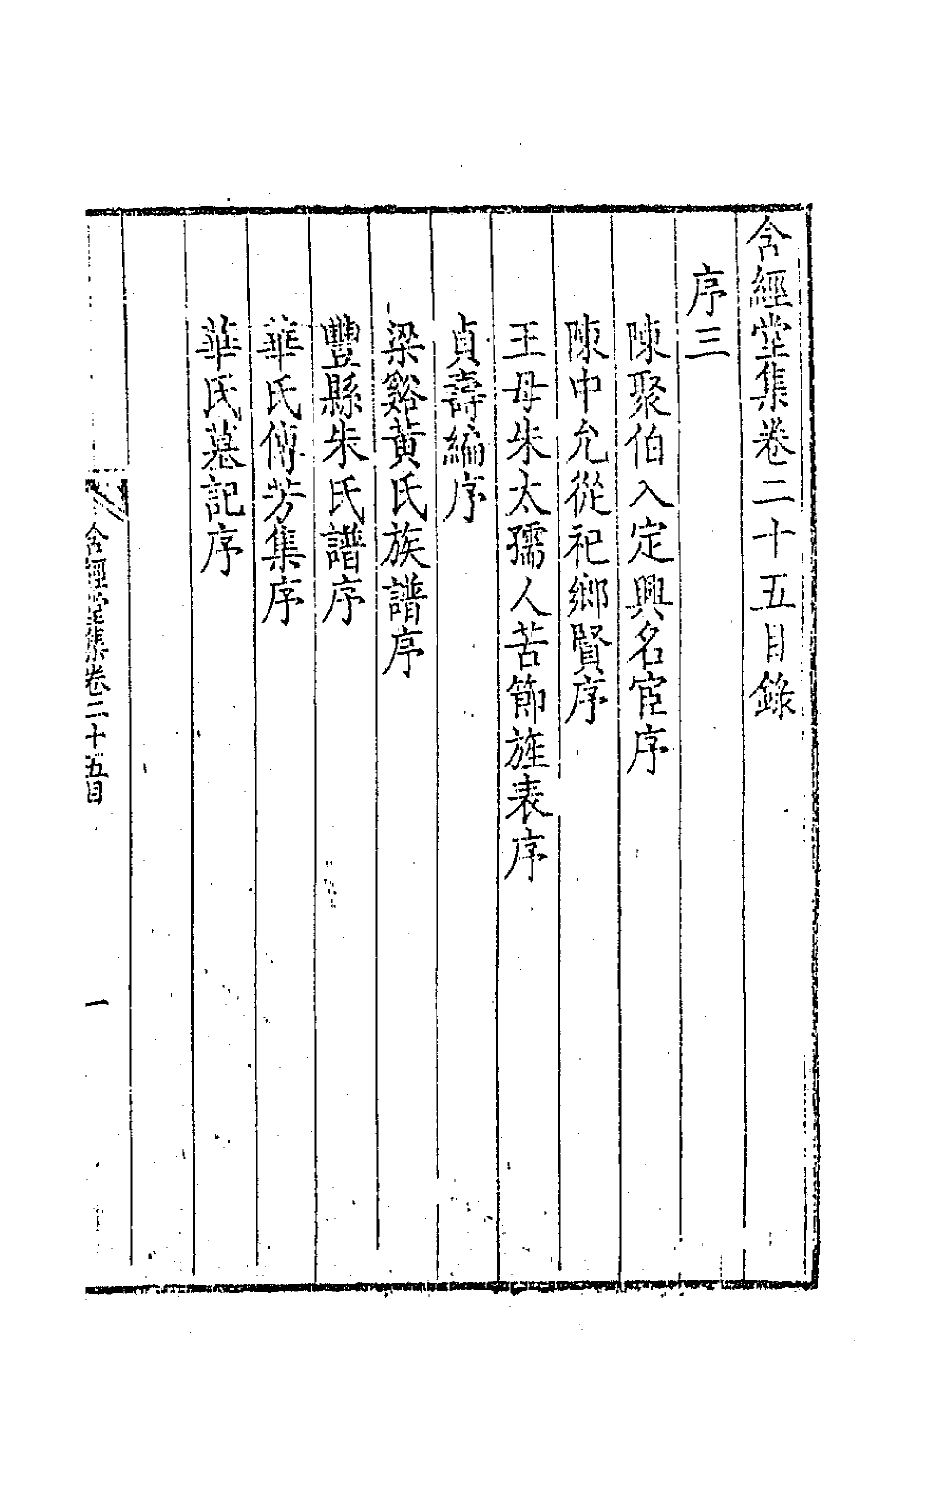 含經堂集卷二十五目錄
序三
陳聚伯入定興名宦序
陳中允從祀鄉賢序
王母朱太孺人苦節旌表序
貞壽編序
梁谿黄氏族譜序
豐縣朱氏譜序
華氏傳芳集序
華氏墓記序
含經堂集卷二十五目
一